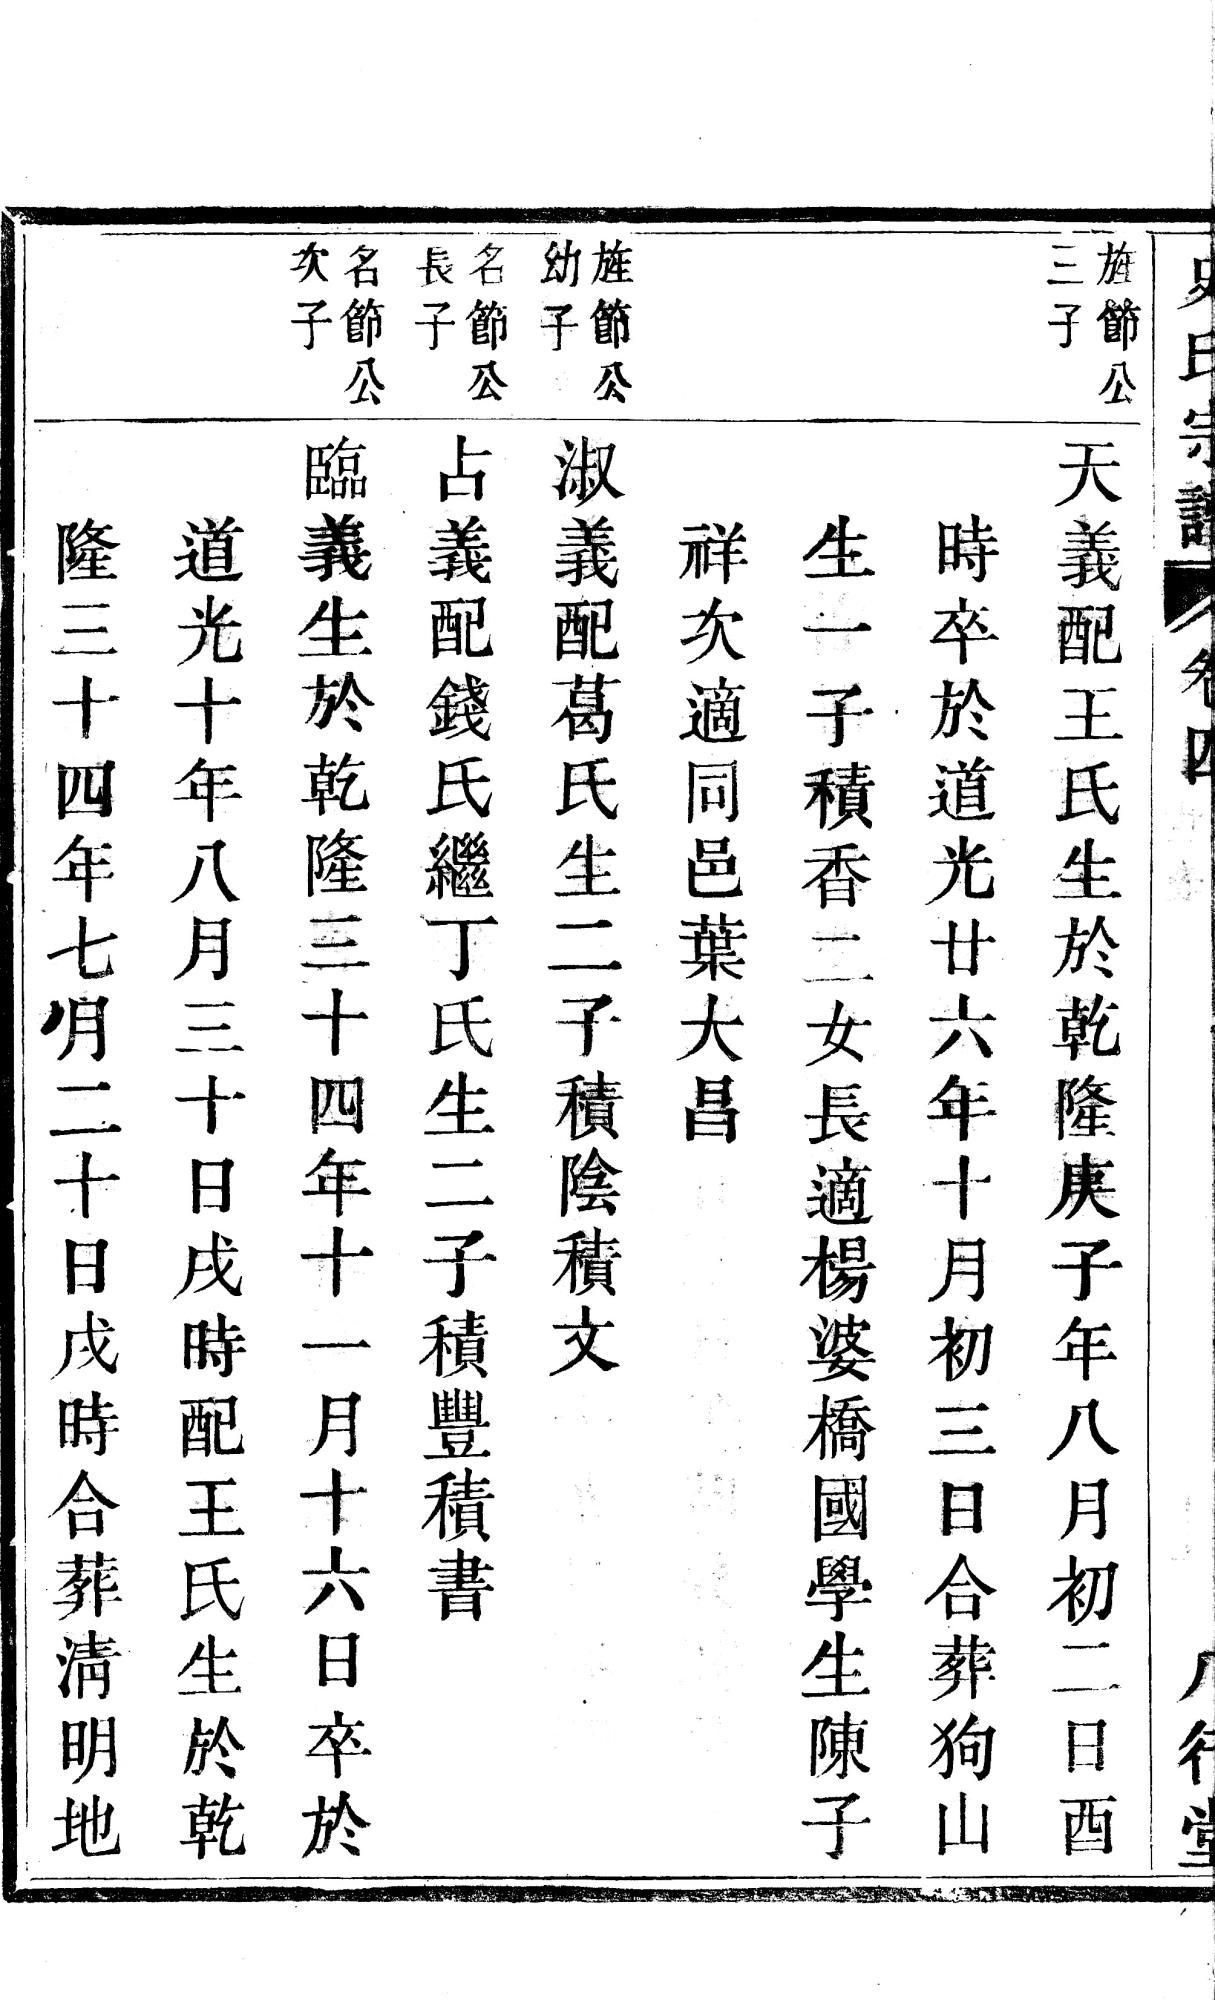 史氏宗譜 卷四 八行堂
旌節公
三子
天義配王氏生於乾隆庚子年八月初二日酉
時卒於道光廿六年十月初三日合葬狗山
生一子積香二女長適楊婆橋國學生陳子
祥次適同邑葉大昌
旌節公
幼子
淑義配葛氏生二子積陰積文
名節公
長子
占義配錢氏繼丁氏生二子積豐積書
名節公
次子
臨義生於乾隆三十四年十一月十六日卒於
道光十年八月三十日戌時配王氏生於乾
隆三十四年七月二十日戌時合葬淸明地